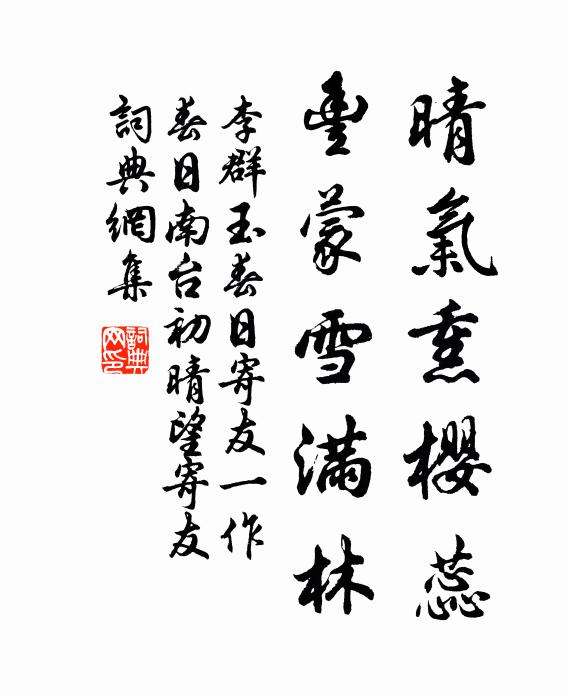 晴氣熏櫻蕊
豊蒙雪滿林
李群玉春日寄友一作
春日南台初晴望寄友
詞典網集
詞典网印